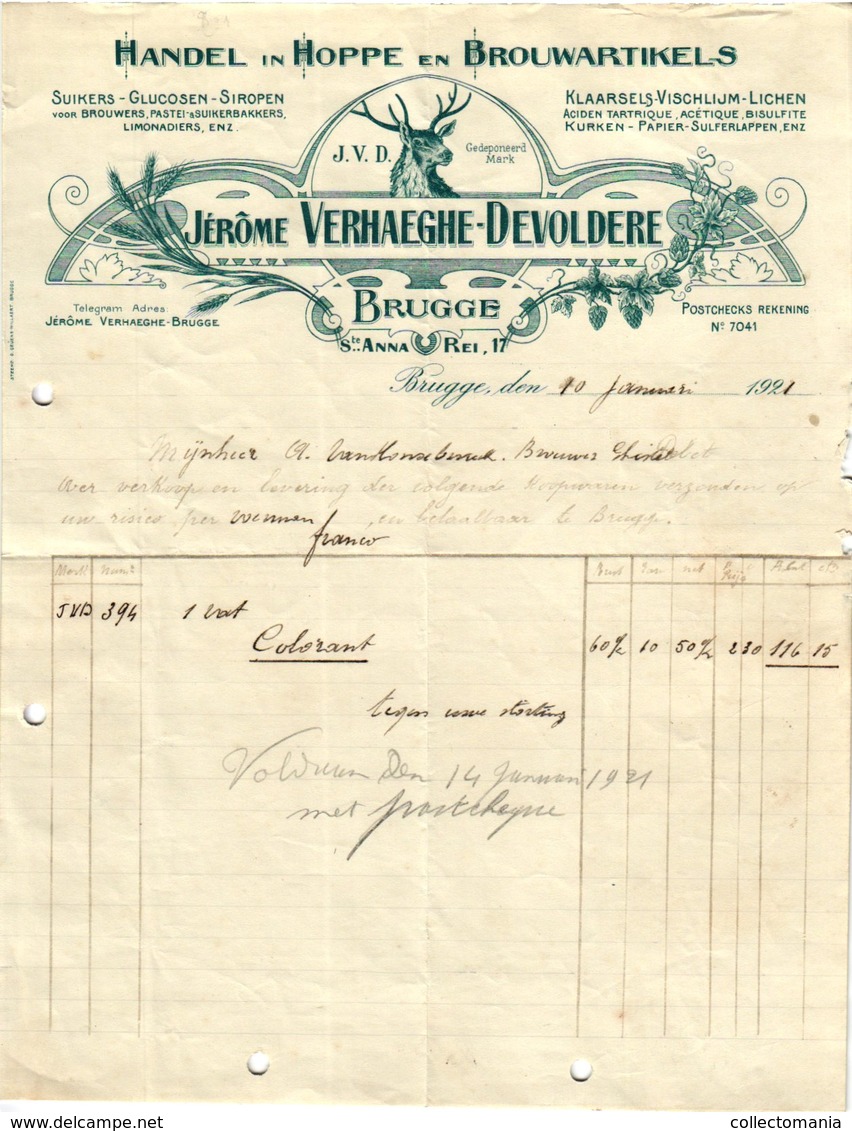 HANDEL IN HOPPE EN BROUWARTIKELS
SUIKERS - GLUCOSEN - SIROPEN
VOOR BROUWERS, PASTEI- & SUIKERBAKKERS,
LIMONADIERS, ENZ.
KLAARSELS-VISCHLIJM-LICHEN
ACIDEN TARTRIQUE, ACÉTIQUE, BISULFITE
KURKEN - PAPIER-SULFERLAPPEN, ENZ
J.V.D.
Gedeponeerd
Mark
JÉRÔME VERHAEGHE-DEVOLDERE
BRUGGE
Ste ANNA REI, 17
Telegram Adres.
JÉRÔME VERHAEGHE-BRUGGE
POSTCHECKS REKENING
No 7041
Brugge, den 10 Januari 1921
Mijnheer A. Brouwer Debet
Over verkoop en levering der volgende Koopwaren verzonden op
uw risico per en betaalbaar te Brugge.
franco
Merk Numr net
JVD 394 1 vat
Colorant 60 10 50 230 116 15
tegen uwe storting
Voldaan Den 14 Januari 1921
met postcheque
collectomania